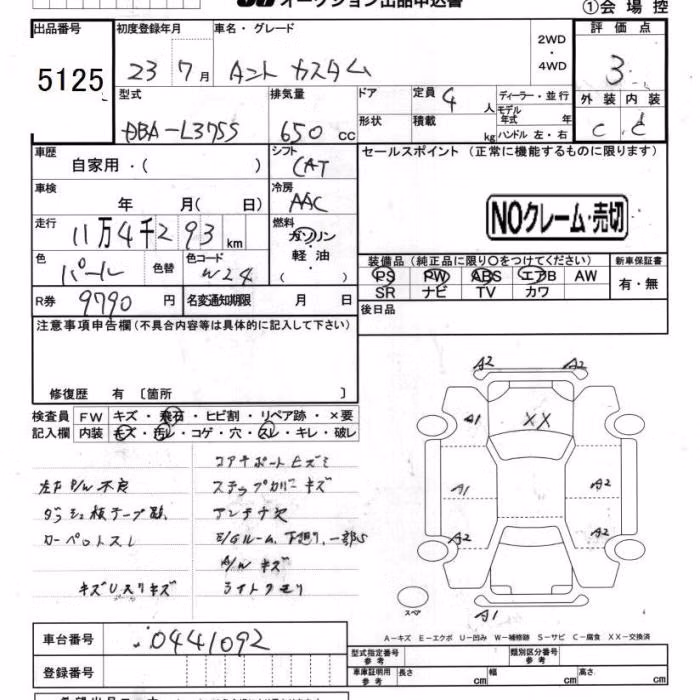 オークション出品申込書
①会場控
出品番号 初度登録年月 車名・グレード 2WD ・ 4WD 評価点
5125 23 7月 タント カスタム 3
型式 排気量 ドア 定員 4人 ディーラー・並行 外装 内装
DBA-L375S 650 cc 形状 積載 kg モデル年式 年 ハンドル 左・右 C C
車歴 自家用・( ) シフト CAT セールスポイント (正常に機能するものに限ります)
車検 年 月( 日) 冷房 AAC
NOクレーム・売切
走行 11万4千293 km 燃料 ガソリン・軽油・( )
色 パール 色替 色コード W24
装備品(純正品に限り〇をつけてください) 新車保証書
PS PW ABS エアB AW 有・無
SR ナビ TV カワ
R券 9790 円 名変通知期限 月 日
後日品
注意事項申告欄(不具合内容等は具体的に記入して下さい)
修復歴 有 〔箇所 〕
検査員 FW キズ・飛石・ヒビ割・リペア跡・×要
記入欄 内装 キズ・汚レ・コゲ・穴・スレ・キレ・破レ
コアサポートヒズミ
左F P/W 不良 ステップカバーキズ
ダッシュ板テープ跡 アンテナ欠
カーペットスレ E/Gルーム、下廻り、一部S
A/W キズ
キズUスリキズ ライトクモリ
A2 A2
A1 XX
A1 A2
A2 A2
スペア A1
A-キズ E-エクボ U-凹み W-補修跡 S-サビ C-腐食 XX-交換済
車台番号 0441092
型式指定番号 参考 類別区分番号 参考
登録番号 車庫証明用 参考 長さ cm 幅 cm 高さ cm